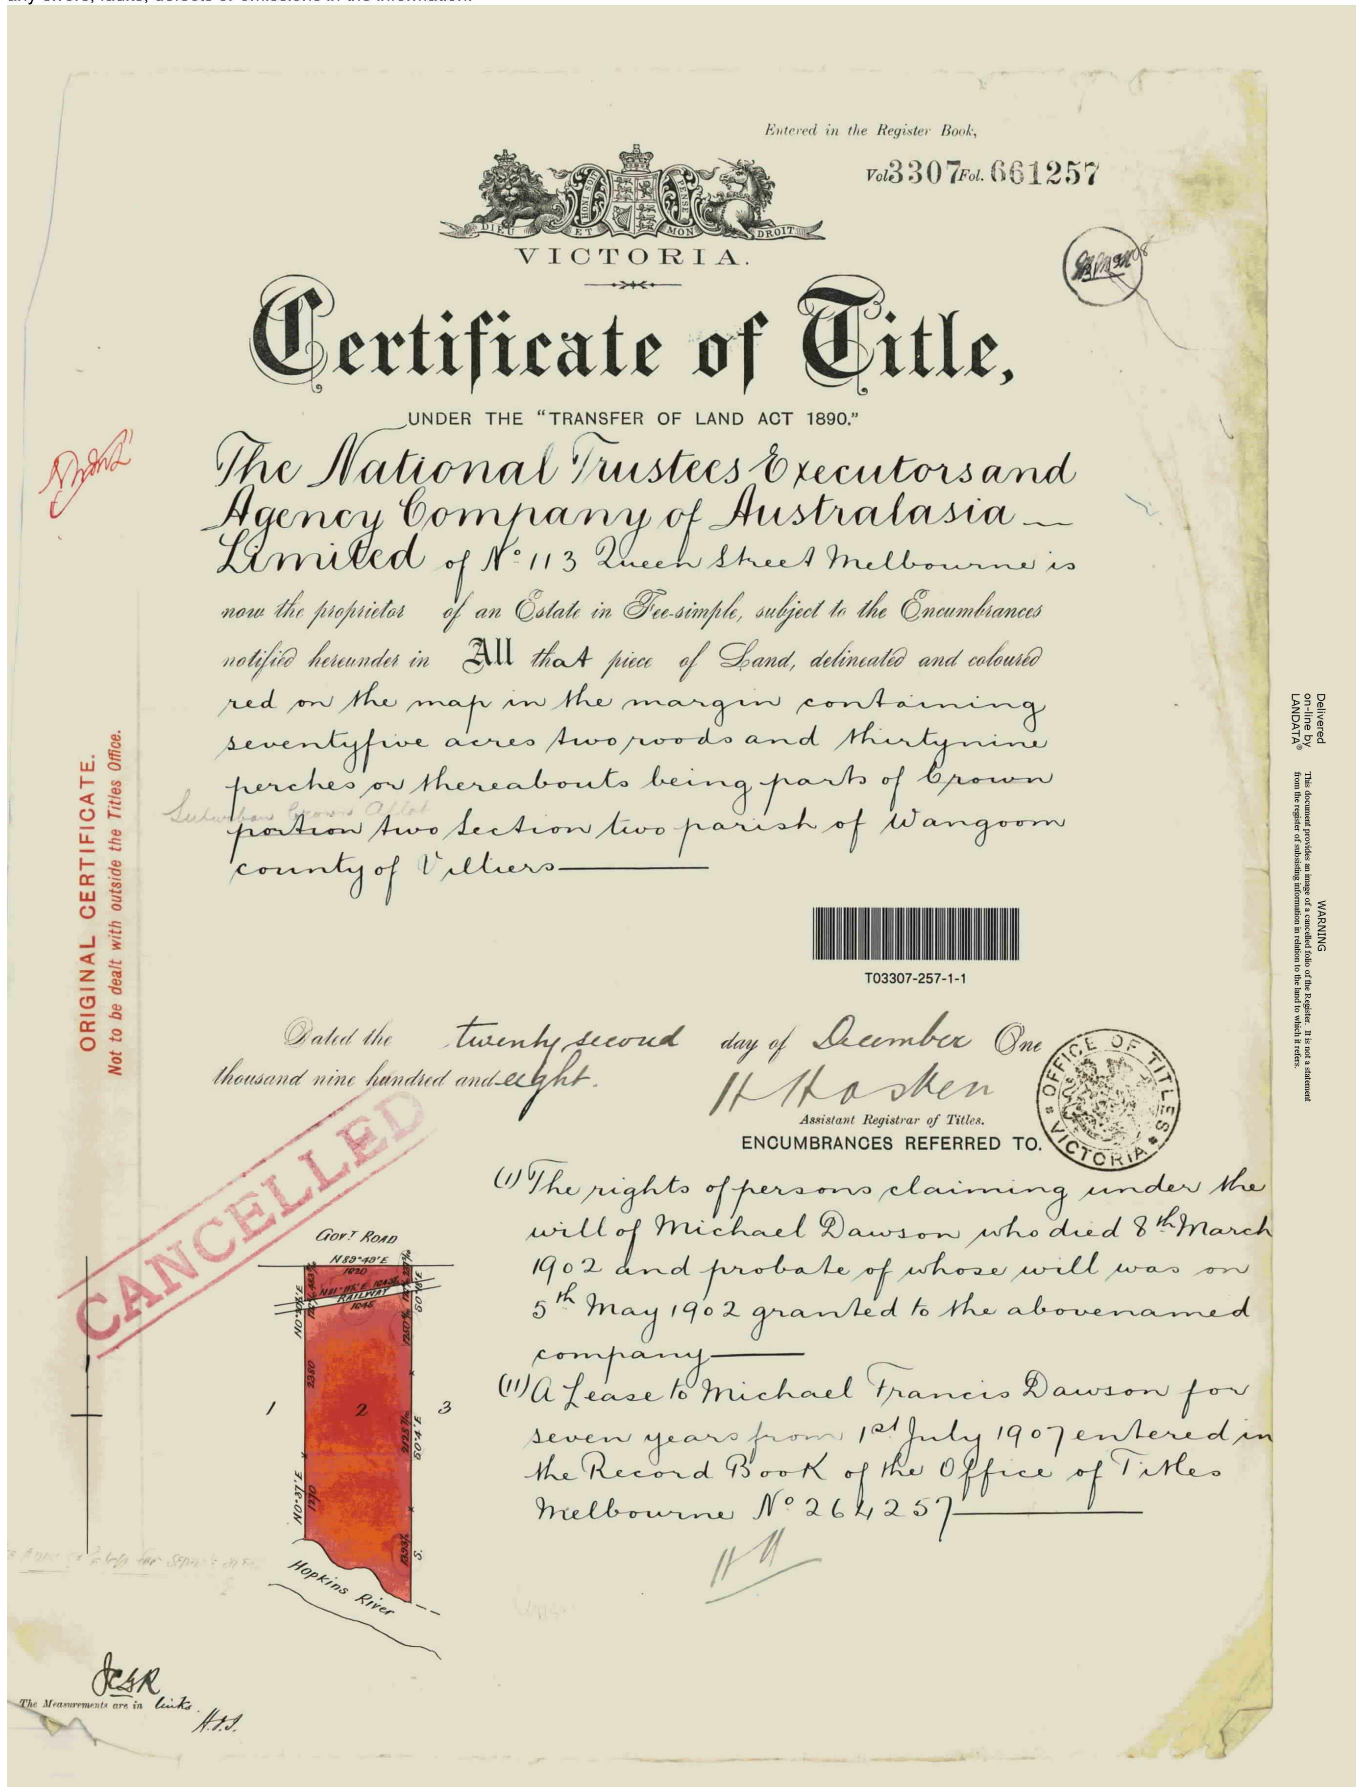 any errors, faults, defects or omissions in the information.
Entered in the Register Book,
Vol 3307 Fol. 661257
HONI SOI PENSE
DIEU ET MON DROIT
VICTORIA.
Certificate of Title,
UNDER THE "TRANSFER OF LAND ACT 1890."
The National Trustees Executors and
Agency Company of Australasia
Limited of No 113 Queen Street Melbourne is
now the proprietor of an Estate in Fee-simple, subject to the Encumbrances
notified hereunder in All that piece of Land, delineated and coloured
red on the map in the margin containing
seventyfive acres two roods and thirtynine
perches or thereabouts being parts of Crown
Suburban Crown Allot
portion two Section two parish of Wangoom
county of Villiers
T03307-257-1-1
Dated the twenty second day of December One
thousand nine hundred and eight.
H Hosken
Assistant Registrar of Titles.
OFFICE OF TITLES
VICTORIA
ENCUMBRANCES REFERRED TO.
(1) The rights of persons claiming under the
will of Michael Dawson who died 8th March
1902 and probate of whose will was on
5th May 1902 granted to the abovenamed
company
(11) A Lease to Michael Francis Dawson for
seven years from 1st July 1907 entered in
the Record Book of the Office of Titles
Melbourne No 264257
HH
ORIGINAL CERTIFICATE.
Not to be dealt with outside the Titles Office.
CANCELLED
GOVT ROAD
N89°49'E
1020
RAILWAY
1045
2380
1
2
3
S0°4'E
N0°37'E
1270
S.
Hopkins River
The Measurements are in links.
Delivered
on-line by
LANDATA®
WARNING
This document provides an image of a cancelled folio of the Register. It is not a statement
from the register of subsisting information in relation to the land to which it refers.